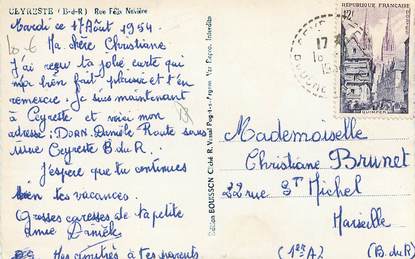 CEYRESTE (B-d-R) Rue Félix Nevière
Mardi ce 17 Août 1954
Ma chère Christiane.
J'ai reçu ta jolie carte qui
m'a bien fait plaisir et t'en
remercie. Je suis maintenant
à Ceyreste et voici mon
adresse: DORN. Danièle Route
Ceyreste B du R.
J'espère que tu continues
bien tes vacances.
Grosses caresses de ta petite
amie Danièle.
Mes amitiés à tes parents
RÉPUBLIQUE FRANÇAISE
12F
QUIMPER
17
Mademoiselle
Christiane Brunet
22 rue ST Michel
Marseille
(1er A) (B. du R)